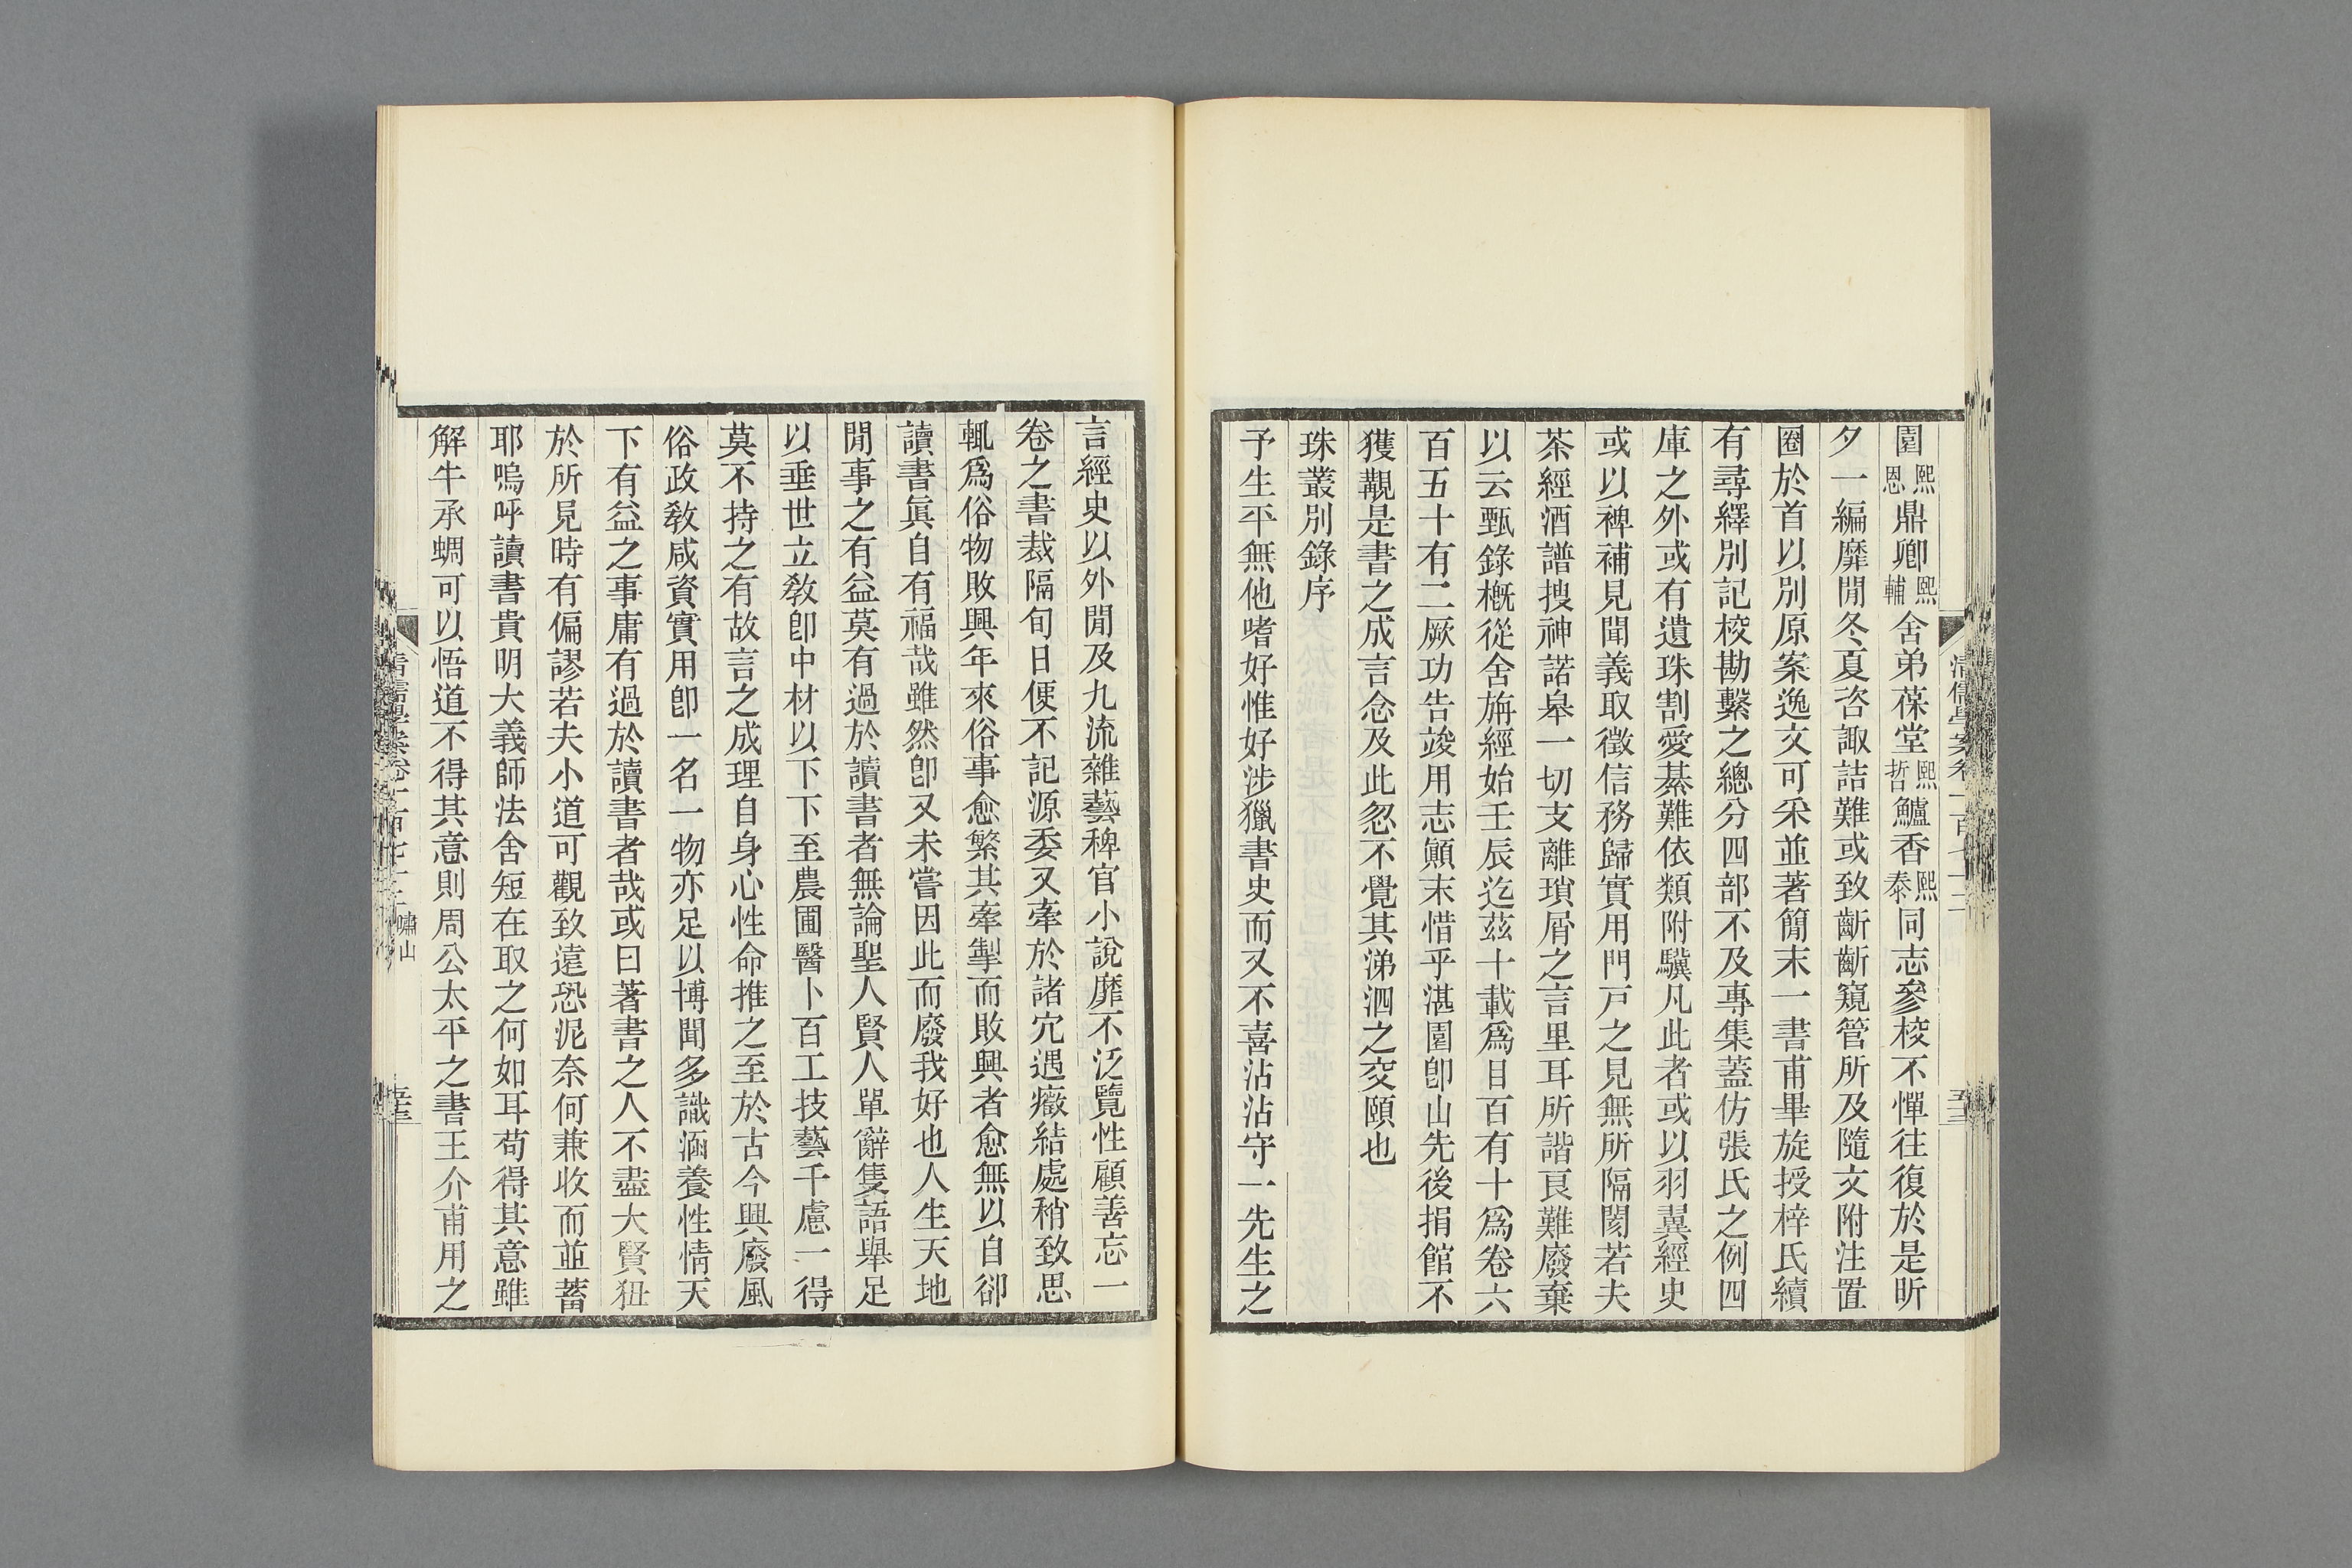 園熙恩鼎卿熙輔舍弟葆堂熙哲鱸香熙泰同志參校不憚往復於是昕
夕一編靡閒冬夏咨諏詰難或致齗齗窺管所及隨文附注置
圈於首以別原案逸文可采並著簡末一書甫畢旋授梓氏續
有尋繹別記校勘繫之總分四部不及專集蓋仿張氏之例四
庫之外或有遺珠割愛綦難依類附驥凡此者或以羽翼經史
或以裨補見聞義取徵信務歸實用門戶之見無所隔閡若夫
茶經酒譜搜神諾皋一切支離瑣屑之言里耳所諧艮難廢棄
以云甄錄概從舍旃經始壬辰迄茲十載爲目百有十爲卷六
百五十有二厥功告竣用志顛末惜乎湛園卽山先後捐館不
獲觀是書之成言念及此忽不覺其涕泗之交頤也
珠叢別錄序
予生平無他嗜好惟好涉獵書史而又不喜沾沾守一先生之
言經史以外閒及九流雜藝稗官小說靡不泛覽性顧善忘一
卷之書裁隔旬日便不記源委又牽於諸冗遇癥結處稍致思
輒爲俗物敗興年來俗事愈繁其牽掣而敗興者愈無以自卻
讀書眞自有福哉雖然卽又未嘗因此而廢我好也人生天地
閒事之有益莫有過於讀書者無論聖人賢人單辭隻語舉足
以垂世立敎卽中材以下下至農圃醫卜百工技藝千慮一得
莫不持之有故言之成理自身心性命推之至於古今興廢風
俗政敎咸資實用卽一名一物亦足以博聞多識涵養性情天
下有益之事庸有過於讀書者哉或曰著書之人不盡大賢狃
於所見時有偏謬若夫小道可觀致遠恐泥奈何兼收而並蓄
耶嗚呼讀書貴明大義師法舍短在取之何如耳苟得其意雖
解牛承蜩可以悟道不得其意則周公太平之書王介甫用之
嘯山